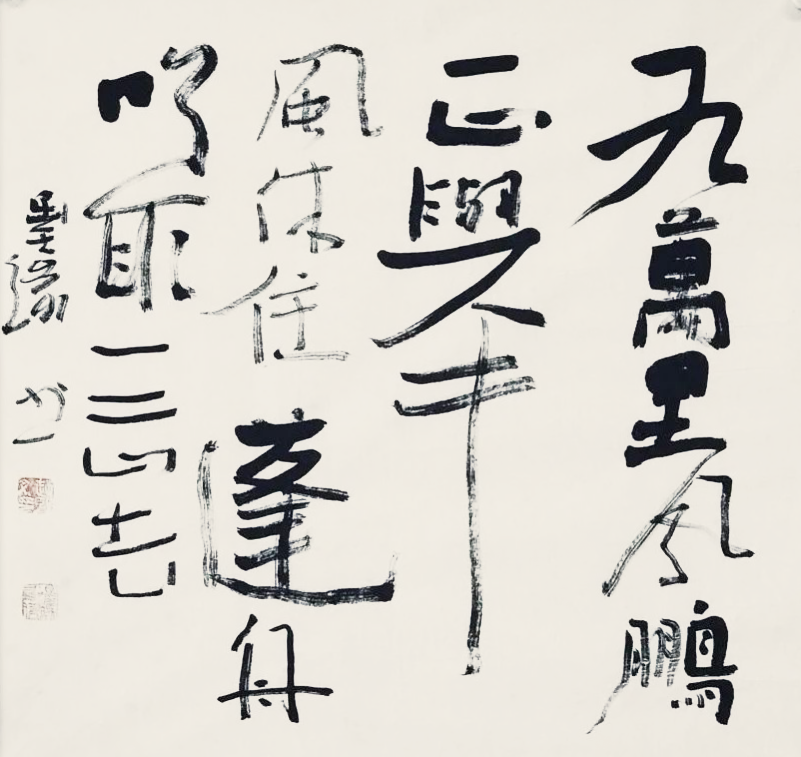 九萬里风鵬
正舉
風休住蓬舟
吹取三山去
书